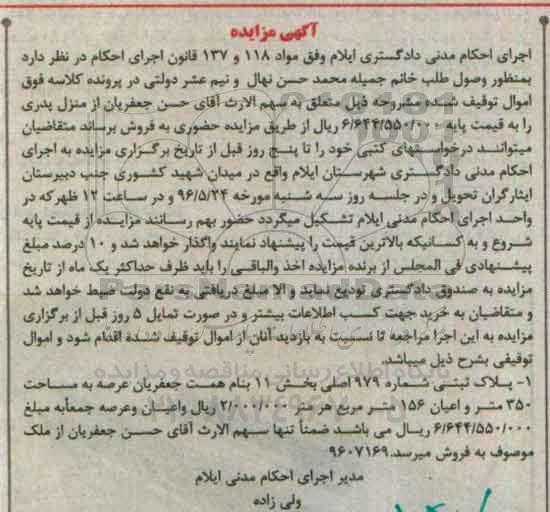 آگهی مزایده
اجرای احکام مدنی دادگستری ایلام وفق مواد ۱۱۸ و ۱۳۷ قانون اجرای احکام در نظر دارد
بمنظور وصول طلب خانم جمیله محمد حسن نهال و نیم عشر دولتی در پرونده کلاسه فوق
اموال توقیف شده مشروحه ذیل متعلق به سهم الارث آقای حسن جعفریان از منزل پدری
را به قیمت پایه ۶/۶۴۴/۵۵۰/۰۰۰ ریال از طریق مزایده حضوری به فروش برساند متقاضیان
میتوانند درخواستهای کتبی خود را تا پنج روز قبل از تاریخ برگزاری مزایده به اجرای
احکام مدنی دادگستری شهرستان ایلام واقع در میدان شهید کشوری جنب دبیرستان
ایثارگران تحویل و در جلسه روز سه شنبه مورخه ۹۶/۵/۲۴ و در ساعت ۱۲ ظهرکه در
واحد اجرای احکام مدنی ایلام تشکیل میگردد حضور بهم رسانند مزایده از قیمت پایه
شروع و به کسانیکه بالاترین قیمت را پیشنهاد نمایند واگذار خواهد شد و ۱۰ درصد مبلغ
پیشنهادی فی المجلس از برنده مزایده اخذ والباقی را باید ظرف حداکثر یک ماه از تاریخ
مزایده به صندوق دادگستری تودیع نماید و الا مبلغ دریافتی به نفع دولت ضبط خواهد شد
و متقاضیان به خرید جهت کسب اطلاعات بیشتر و در صورت تمایل ۵ روز قبل از برگزاری
مزایده به این اجرا مراجعه تا نسبت به بازدید آنان از اموال توقیف شده اقدام شود و اموال
توقیفی بشرح ذیل میباشد.
۱- پلاک ثبتی شماره ۹۷۹ اصلی بخش ۱۱ بنام همت جعفریان عرصه به مساحت
۳۵۰ متر و اعیان ۱۵۶ متر مربع هر متر ۲/۰۰۰/۰۰۰ ریال واعیان وعرصه جمعأبه مبلغ
۶/۶۴۴/۵۵۰/۰۰۰ ریال می باشد ضمناً تنها سهم الارث آقای حسن جعفریان از ملک
موصوف به فروش میرسد.۹۶۰۷۱۶۹
مدیر اجرای احکام مدنی ایلام
ولی زاده